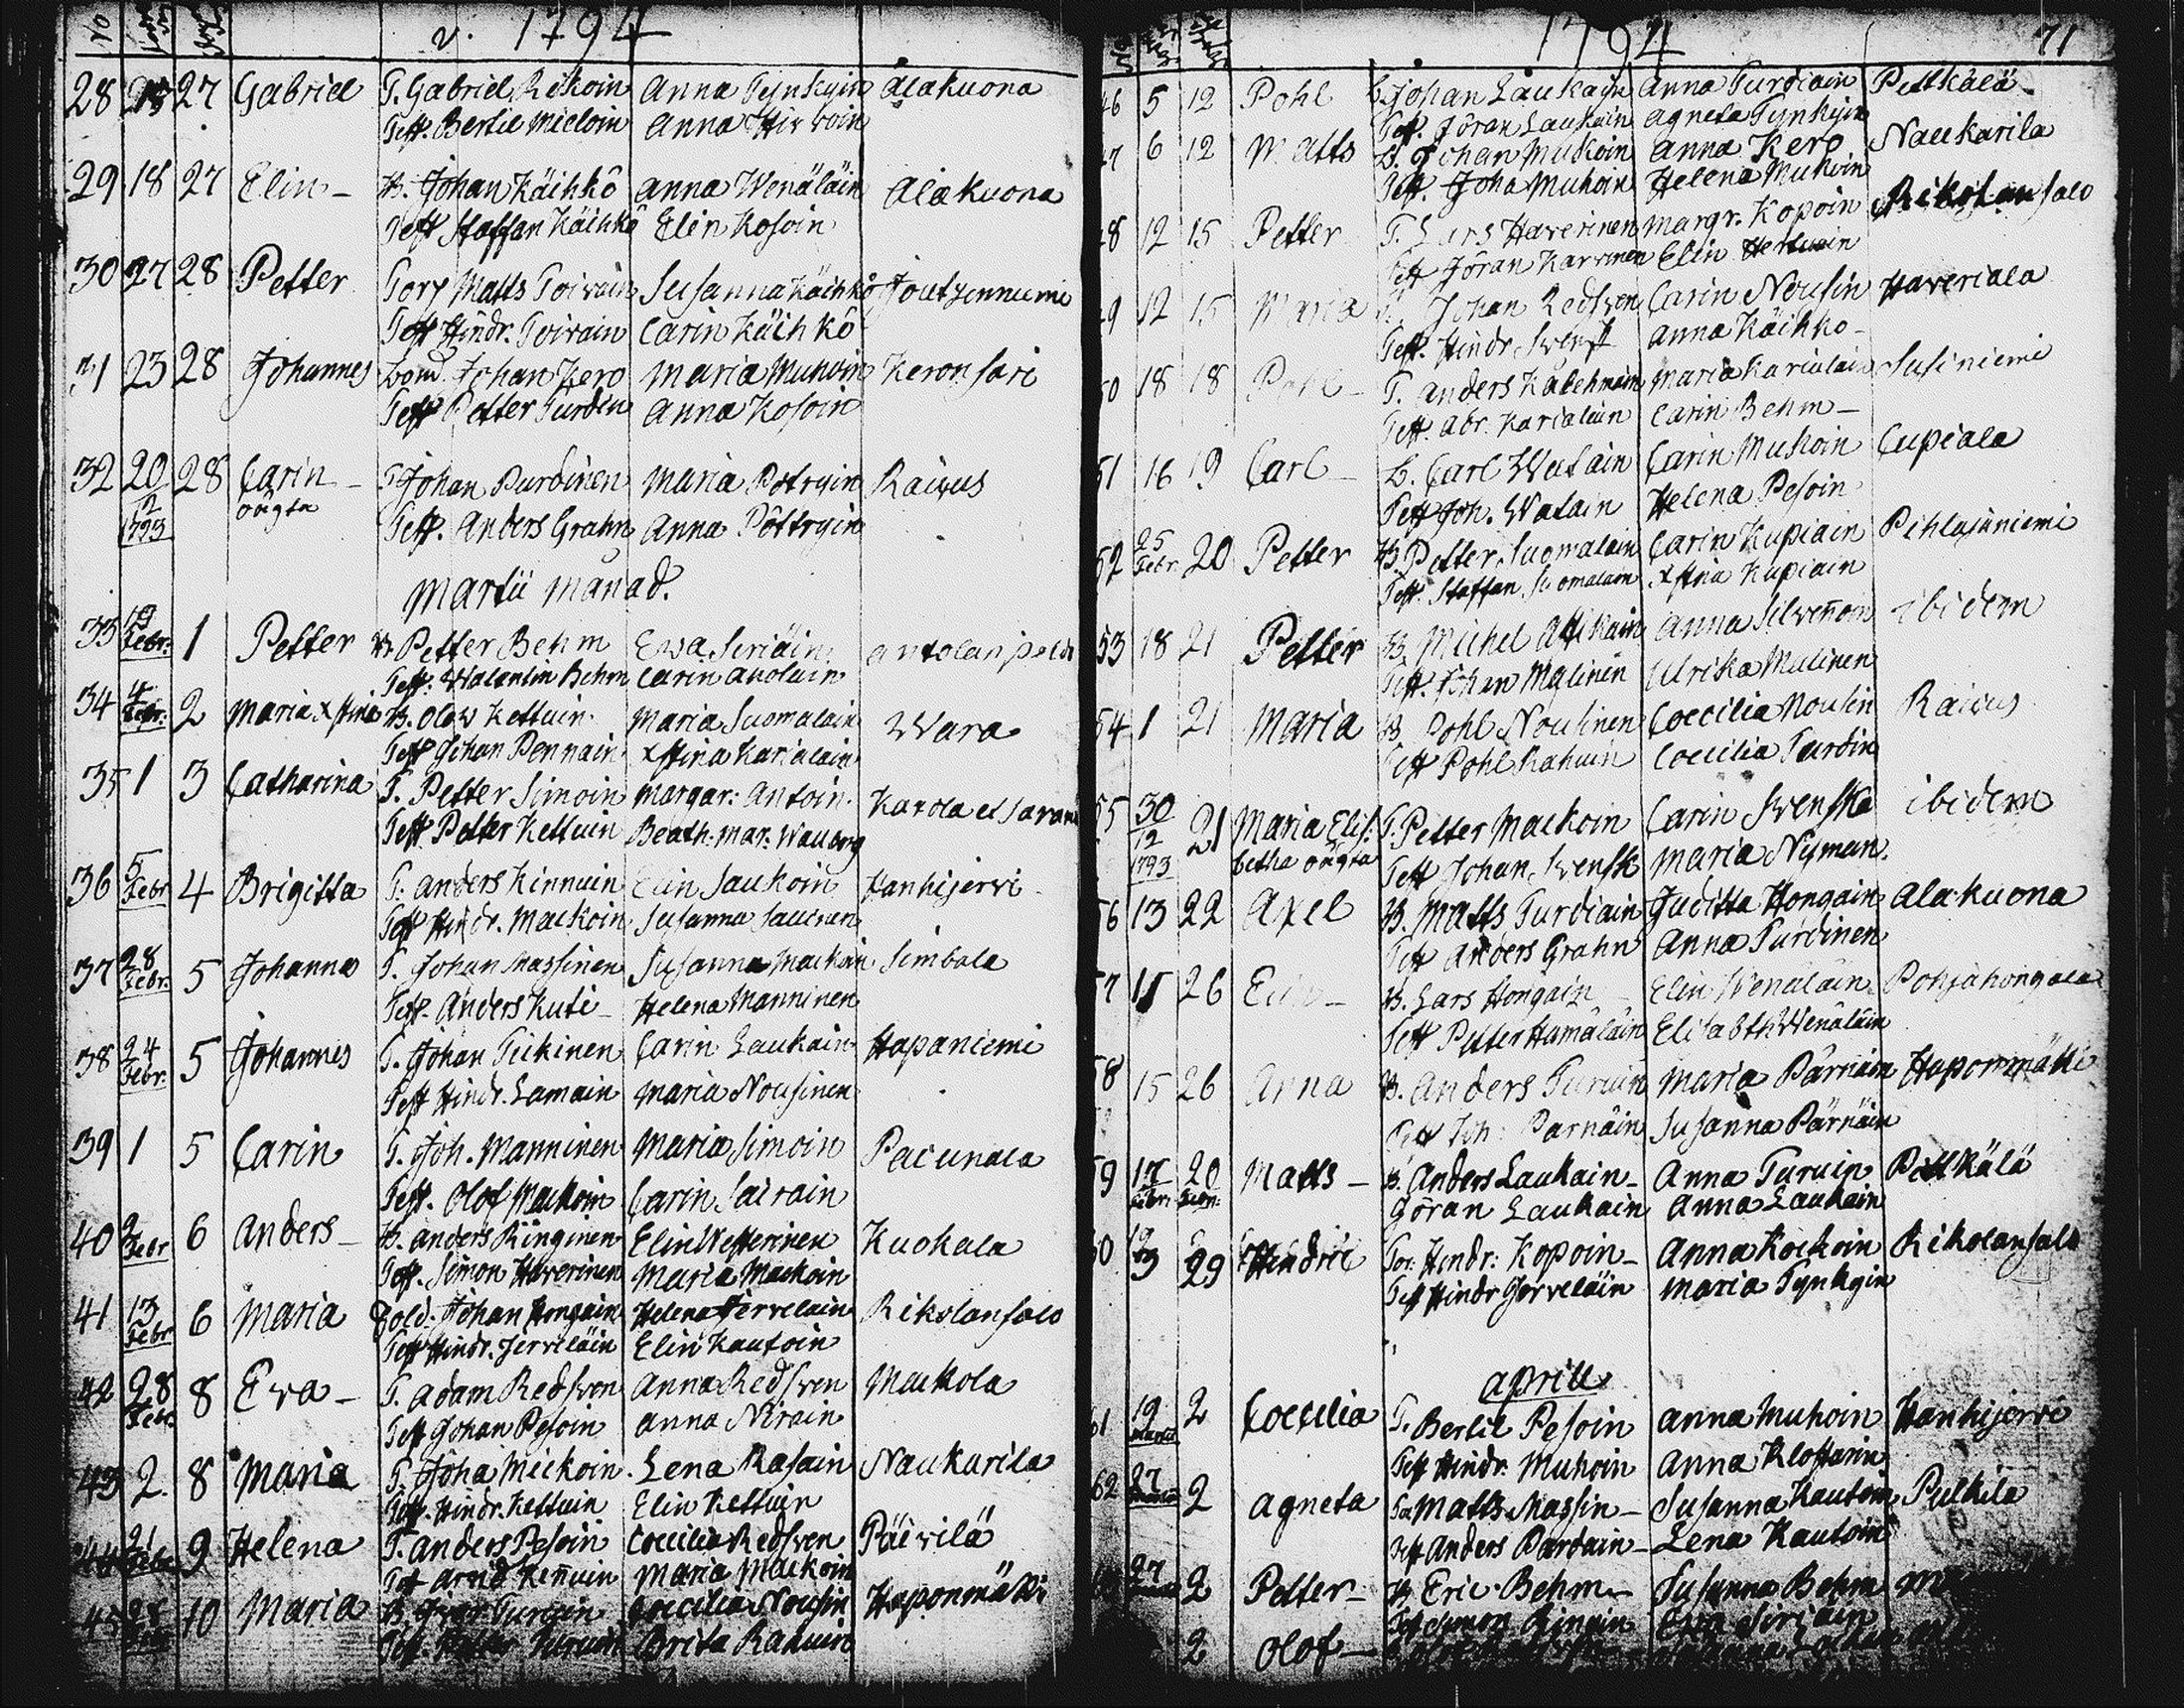 v. 1794
28 27 Gabriel T. Gabriel Rikoin Anna Tynkyin Alakuona
Test. Bertil Mieloin Anna Hirvoin
29 18 27 Elin - B. Johan Käihkö Anna Wenäläin Alakuona
Test Staffan Käihkö Elin Kosoin
30 27 28 Petter Torp Matts Toivain Susanna Käihkö Joutzenniemi
Test Hindr. Toivain Carin Käihkö
31 23 28 Johannes Johan Kero Maria Muhoin Keronsari
Test Petter Turdin Anna Kosoin
32 20 28 Carin - T Johan Purdinen Maria Pötryin Raikus
12 oägta
1793 Test. Anders Grahn Anna Pöttryin
Martii Månad.
33 19 Febr: 1 Petter B Petter Behm Ewa Siriäin
Test: Walentin Behm Carin Auolain
34 4 Febr: 2 Maria Xstina B. Olow Kettuin Maria Suomalain Wara
Test Johan Pennain Xstina Karialain
35 1 3 Catharina T. Petter Simoin Margar: Antoin.
Test Petter Kettuin Beath: Mar:
36 5 Febr 4 Brigitta T. Anders Kinnuin Elin Saukoin Hanhijervi
Test Hindr. Mackoin Susanna
37 28 Febr: 5 Johannes T. Johan Massinen Susanna Mackoin Simbala
Test. Anders Kuti - Helena Manninen
38 24 Febr: 5 Johannes T. Johan Tiikinen Carin Laukain Hapaniemi
Test Hindr. Lamain Maria Nousinen
39 1 5 Carin T. Joh. Manninen Maria Simoin
Test. Olof Mackoin Carin Sairain
40 2 Febr 6 Anders - B. Anders Ringinen Elin Westerinen Kuokala
Test. Simon Haverinen Maria Mackoin
41 13 Febr 6 Maria Sold: Johan Hongain Helena Jervelain Rikolansalo
Test Hindr. Jerveläin Elin Kautoin
42 28 Febr 8 Eva - T. Adam Redsven Anna Redsven Mackola
Test Johan Pesoin Anna Nirain
43 2. 8 Maria T. Joha Mickoin. Lena Rasain Naukarila
Test. Hindr. Kettuin Elin Kettuin
44 21 Febr 9 Helena T. Anders Pesoin Coecilia Redsven Päivilä
Test Arvid Kenuin Maria Mackoin
45 28 10 Maria B. Coecilia Nousin Haponmäki
Test. Petter Brita Rahuin
1794 71
46 5 12 Pohl L. Johan Laukain Anna Turdiain Pellkälä
Test. Jöran Laukain Agneta Tynkyin
47 6 12 Matts L. Johan Mukoin Anna Kero Naukarila
Test. Joha Muhoin Helena Muhoin
48 12 15 Petter T. Lars Haverinen Margr. Kopoin Rikolansalo
Test Jöran Karvinen Elin
49 12 15 Maria Johan Redsven Carin Nousin Haveriala
Test. Hindr Svensk Anna Käihkö -
50 18 18 Pohl - T. Anders Kälehmäin Maria Karialain Susiniemi
Test. Abr. Karialain Carin Behm -
51 16 19 Carl - L. Carl Watain Carin Muhoin Cupiala
Test Joh. Watain Helena Pesoin
52 25 Febr. 20 Petter B. Petter Suomalain Carin Kupiain Pihlajaniemi
Test. Staffan Suomalain Xstina Kupiain
53 18 21 Petter B. Michel Anna Silvenoin ibidem
Test. Johan Malinen Ulrika Malinen
54 1 21 Maria B Pohl Nousinen Coecilia Nousin Raikus
Test Pohl Rahuin Coecilia Turdin
55 30 21 Maria Elis: T. Petter Mackoin Carin Svenske ibidem
12 betha oägta
1793 Test Johan Svensk Maria Nyman.
56 13 22 Axel B. Matts Turdiain Juditta Hongain Ala-kuona
Test Anders Grahn Anna Turdinen
57 15 26 Elin - B. Lars Hongain - Elin Wenäläin Pohjahongala
Test Petter Hamäläin Elisabth Wenäläin
58 15 26 Anna B. Anders Turuin Maria Pärnäin Haponmäki
Test Joh: Parnäin Susanna Pärnäin
59 17 Febr 20 Febr: Matts - B. Anders Laukain - Anna Turuin Pellkälä
Göran Laukain Anna Laukain
60 29 Hindric Tor: Hindr: Kopoin - Anna Kockoin Rikolansalo
Test Hindr Jerveläin Maria Tynkyin
Aprill
61 19 Martii 2 Coecilia T. Bertil Pesoin Anna Muhoin Hanhijervi
Test Hindr. Muhoin Anna Klostarin
62 27 Martii 2 Agneta Tor Matts Massin - Susanna Kautoin Pulkila
Test Anders Pardain - Lena Kautoin
27 2 Petter - B. Eric Behm - Susanna Behm
Test Simon Ringin Eva Siriäin
2 Olof -